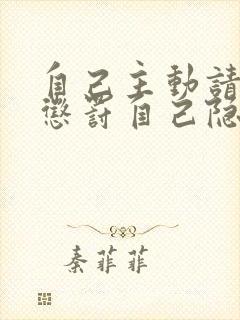 自己主動請
懲罰自己隐
秦菲菲